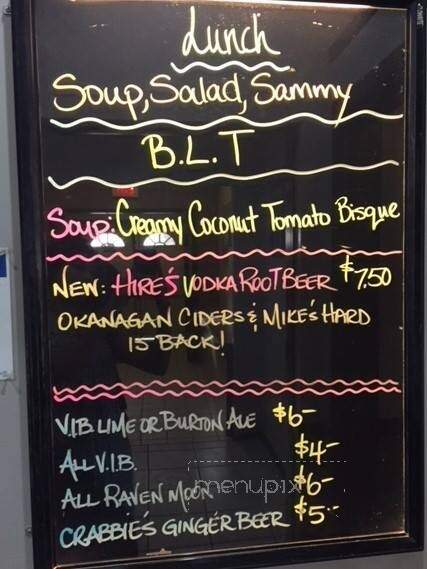 Lunch
Soup, Salad, Sammy
B.L.T
Soup: Creamy Coconut Tomato Bisque
NEW: HIRE'S VODKA ROOT BEER $7.50
OKANAGAN CIDERS & MIKE'S HARD
IS BACK!
V.I.B. LIME OR BURTON ALE $6-
ALL V.I.B. $4-
ALL RAVEN MOON $6-
menupix
CRABBIE'S GINGER BEER $5.-